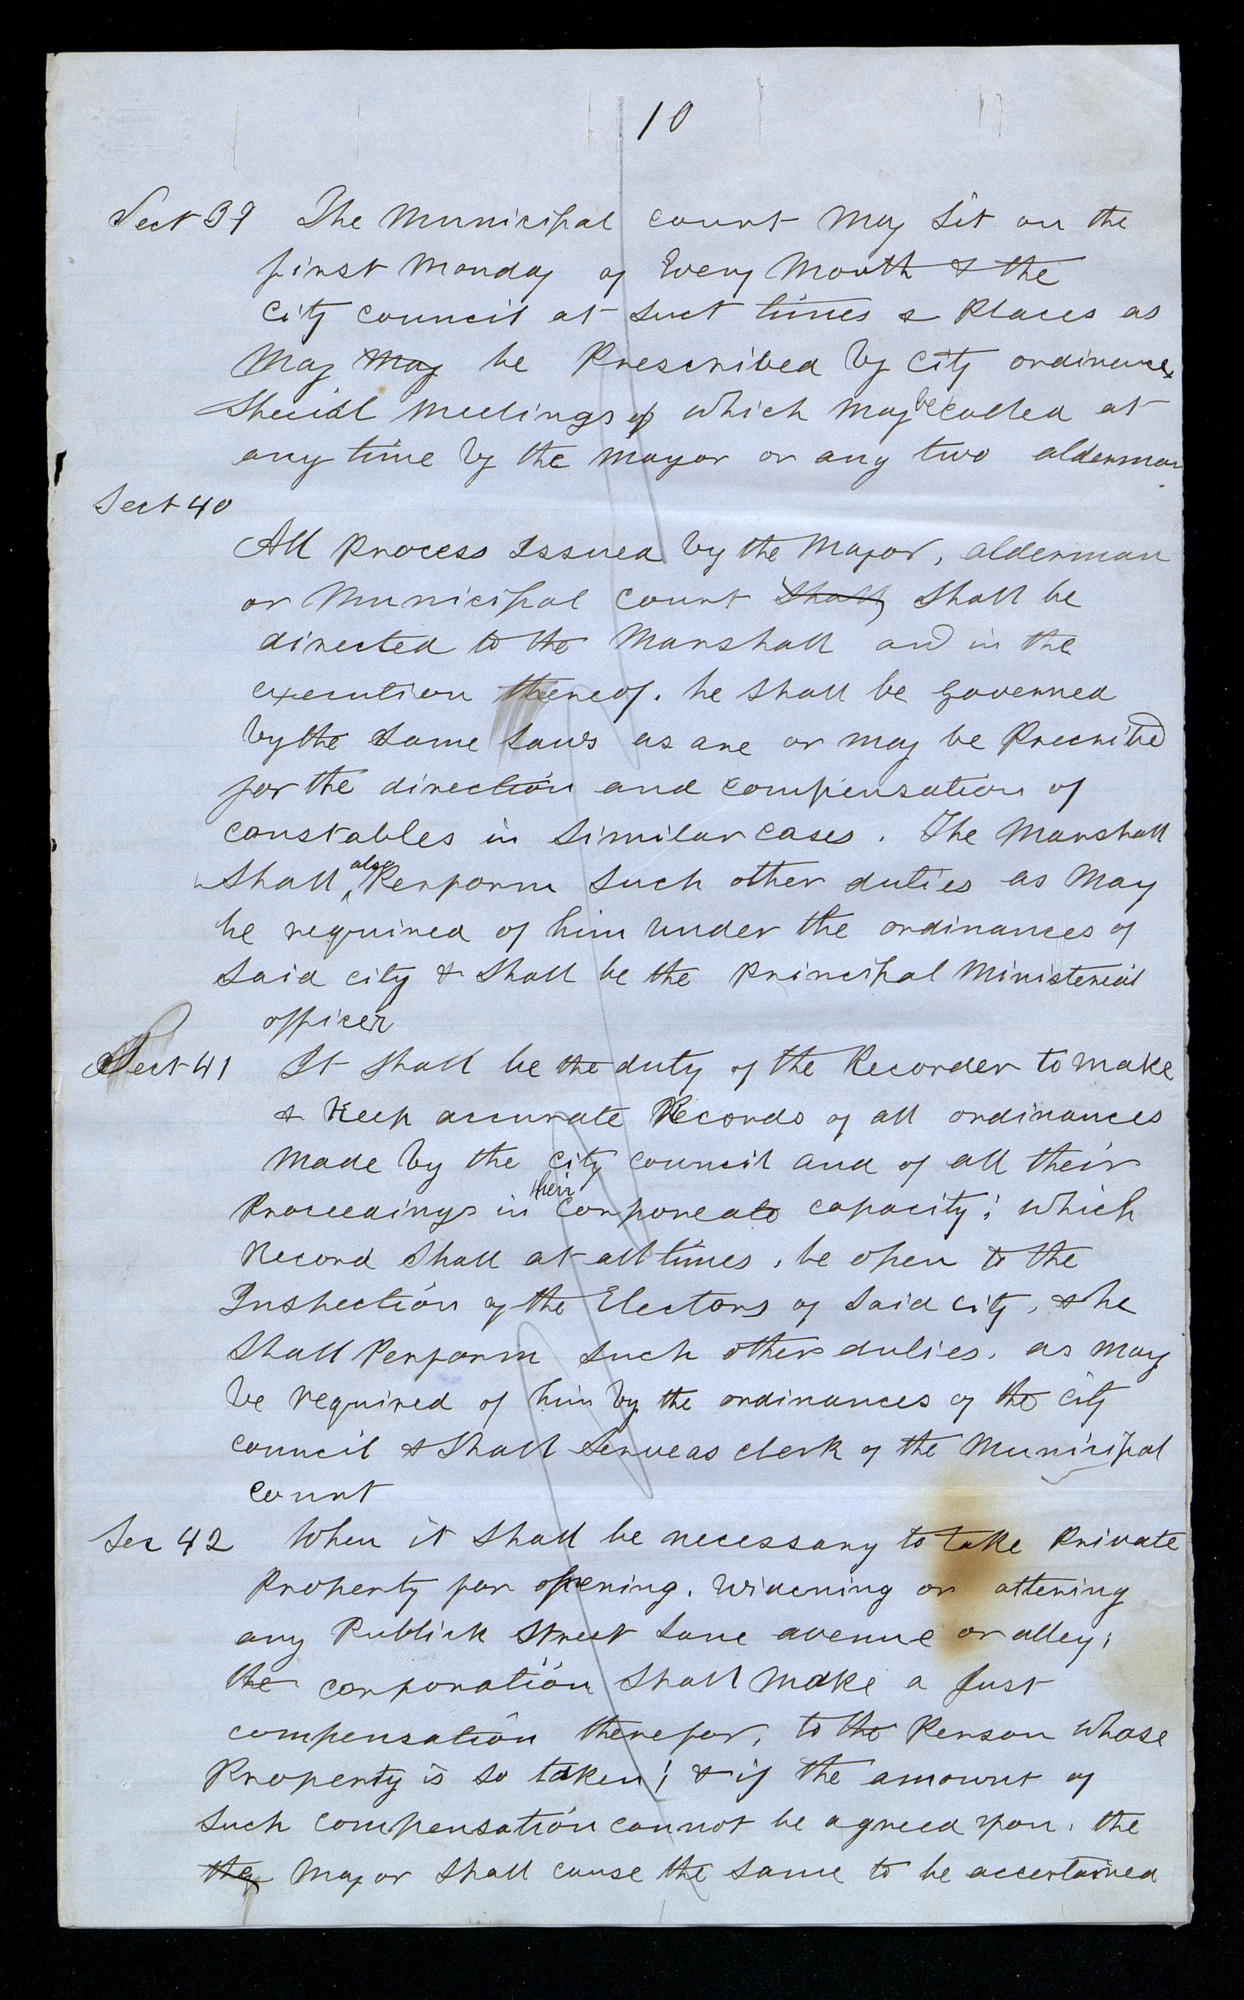 10
Sect 39 The Municipal court May Sit on the
first Monday of Every Month & the
City council at Such times & Places as
May May be Prescribed by City ordinance,
Special Meetings of which May be called at
any time by the Mayor or any two alderman
Sect 40
All Process Issued by the Mayor, alderman
or Municipal Court Shall, Shall be
directed to the Marshall and in the
execution thereof. he Shall be Governed
by the Same Laws as are or may be Precribed
for the direction and compensation of
constables in Similar cases. The Marshall
Shall also Perform Such other duties as May
be required of him under the ordinances of
Said city & Shall be the Principal Ministerial
officer
Sect 41 It Shall be the duty of the Recorder to make
& Keep accurate Records of all ordinances
Made by the city council and of all their
Proceedings in their Corporeate capacity; which
Record Shall at all times, be open to the
Inspection of the Electors of Said city, & he
Shall Perform Such other duties, as may
be required of him by the ordinances of the City
council & Shall Serve as clerk of the Municipal
Court
Sec 42 When it Shall be necessary to take Private
Property for opening, widening or altering
any Publick Street Lane avenue or alley;
the corporation Shall Make a Just
compensation therefor, to the Person whose
Property is So taken; & if the amount of
Such compensation cannot be agreed upon, the
the Mayor Shall cause the Same to be accertained